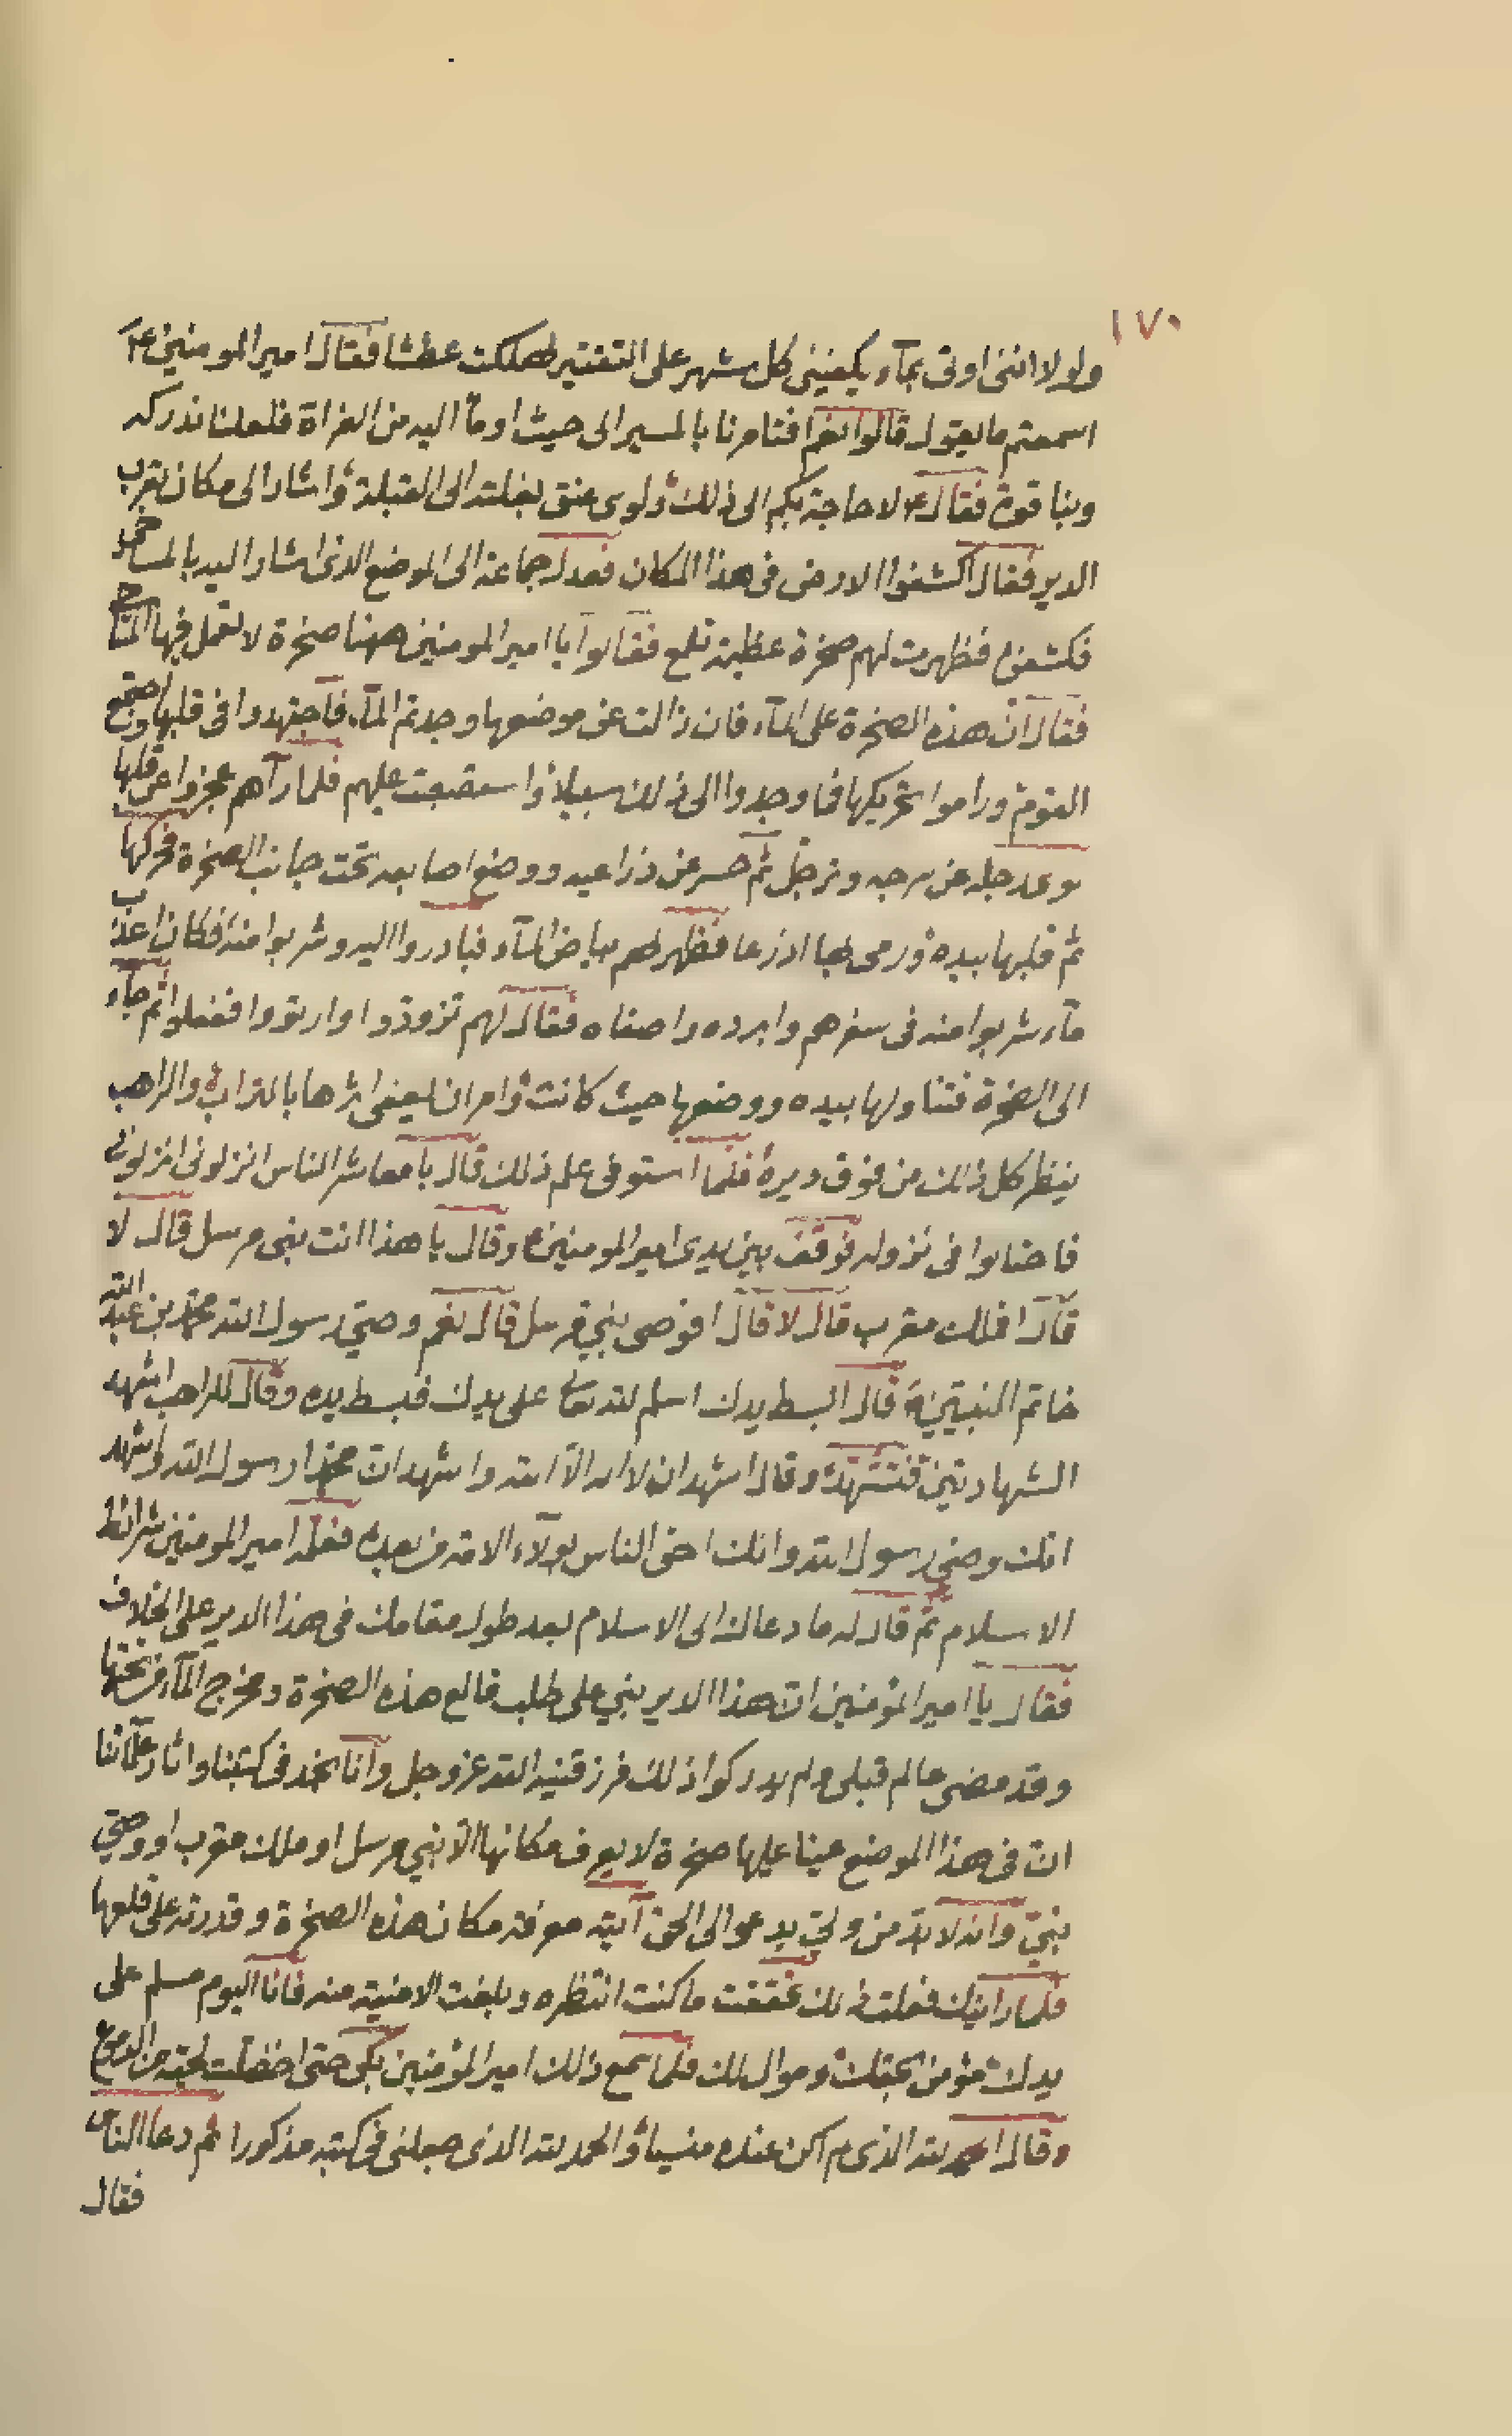 ١٧٠
ولولا انني اوتى بمآء يكفيني كل شهر على التقتير لهلكت عطشا فقال امير المومنين ع
اسمعتم ما يقول قالوا نعم افتامرنا بالمسير الى حيث اومأ اليه من الفراة فلعلنا ندركه
وبنا قوة فقال ع لا حاجة بكم الى ذلك ولوى عنق بغلته الى القبلة واشار الى مكان بقرب
الدير فقال اكشفوا الارض في هذا المكان فعدل جماعة الى الموضع الذي اشار اليه بالمساحي
فكشفوا فظهرت لهم صخرة عظيمة تلمع فقالوا يا امير المومنين ههنا صخرة لا تعمل فيها المساحي
فقال ان هذه الصخرة على المآء فان زالت عن موضعها وجدتم المآء فاجتهدوا في قلبها واجتمع
القوم وراموا تحريكها فما وجدوا الى ذلك سبيلا واستصعبت عليهم فلما رآهم عجزوا عن قلبها
لوى رجله عن سرجه وترجل ثم حسر عن ذراعيه ووضع اصابعه تحت جانب الصخرة فحركها
ثم قلبها بيده ورمى بها اذرعا فظهر لهم بياض المآء فبادروا اليه وشربوا منه فكان اعذب
مآء شربوا منه في سفرهم وابرده واصفاه فقال لهم تزودوا وارتووا ففعلوا ثم جآء
الى الصخرة فتناولها بيده ووضعها حيث كانت وامر ان يعفى اثرها بالتراب والراهب
ينظر كل ذلك من فوق ديره فلما استوفى علم ذلك قال يا معاشر الناس انزلوني انزلوني
فاحتالوا في نزوله فوقف بين يدي امير المومنين ع وقال يا هذا انت نبي مرسل قال لا
قال افملك مقرب قال لا قال افوصي نبي مرسل قال نعم وصي رسول الله محمد بن عبد الله
خاتم النبيين قال ابسط يدك اسلم لله تعالى على يدك فبسط يده وقال للراهب اشهد
الشهادتين فتشهد وقال اشهد ان لا اله الا الله واشهد ان محمدا رسول الله واشهد
انك وصي رسول الله وانك احق الناس بولآء الامة من بعده فعلمه امير المومنين شرائط
الاسلام ثم قال له ما دعاك الى الاسلام بعد طول مقامك في هذا الدير على الخلاف
فقال يا امير المؤمنين ان هذا الدير بني على طلب قالع هذه الصخرة ومخرج المآء من تحتها
وقد مضى عالم قبلي ولم يدركوا ذلك فرزقنيه الله عز وجل وانا نجد في كتبنا واثار علمآئنا
ان في هذا الموضع عينا عليها صخرة لا يعرف مكانها الا نبي مرسل او ملك مقرب او وصي
نبي وانه لابد من ولي يدعو الى الحق آيته معرفة مكان هذه الصخرة وقدرته على قلعها
فلما رايتك فعلت ذلك تحققت ما كنت انتظره وبلغت الامنية منه فانا اليوم مسلم على
يدك مؤمن بحقك وموال لك فلما سمع ذلك امير المؤمنين بكى حتى اخضلت لحيته من الدموع
وقال الحمد لله الذي لم اكن عنده منسيا والحمد لله الذي جعلني في كتبه مذكورا ثم دعا الناس
فقال